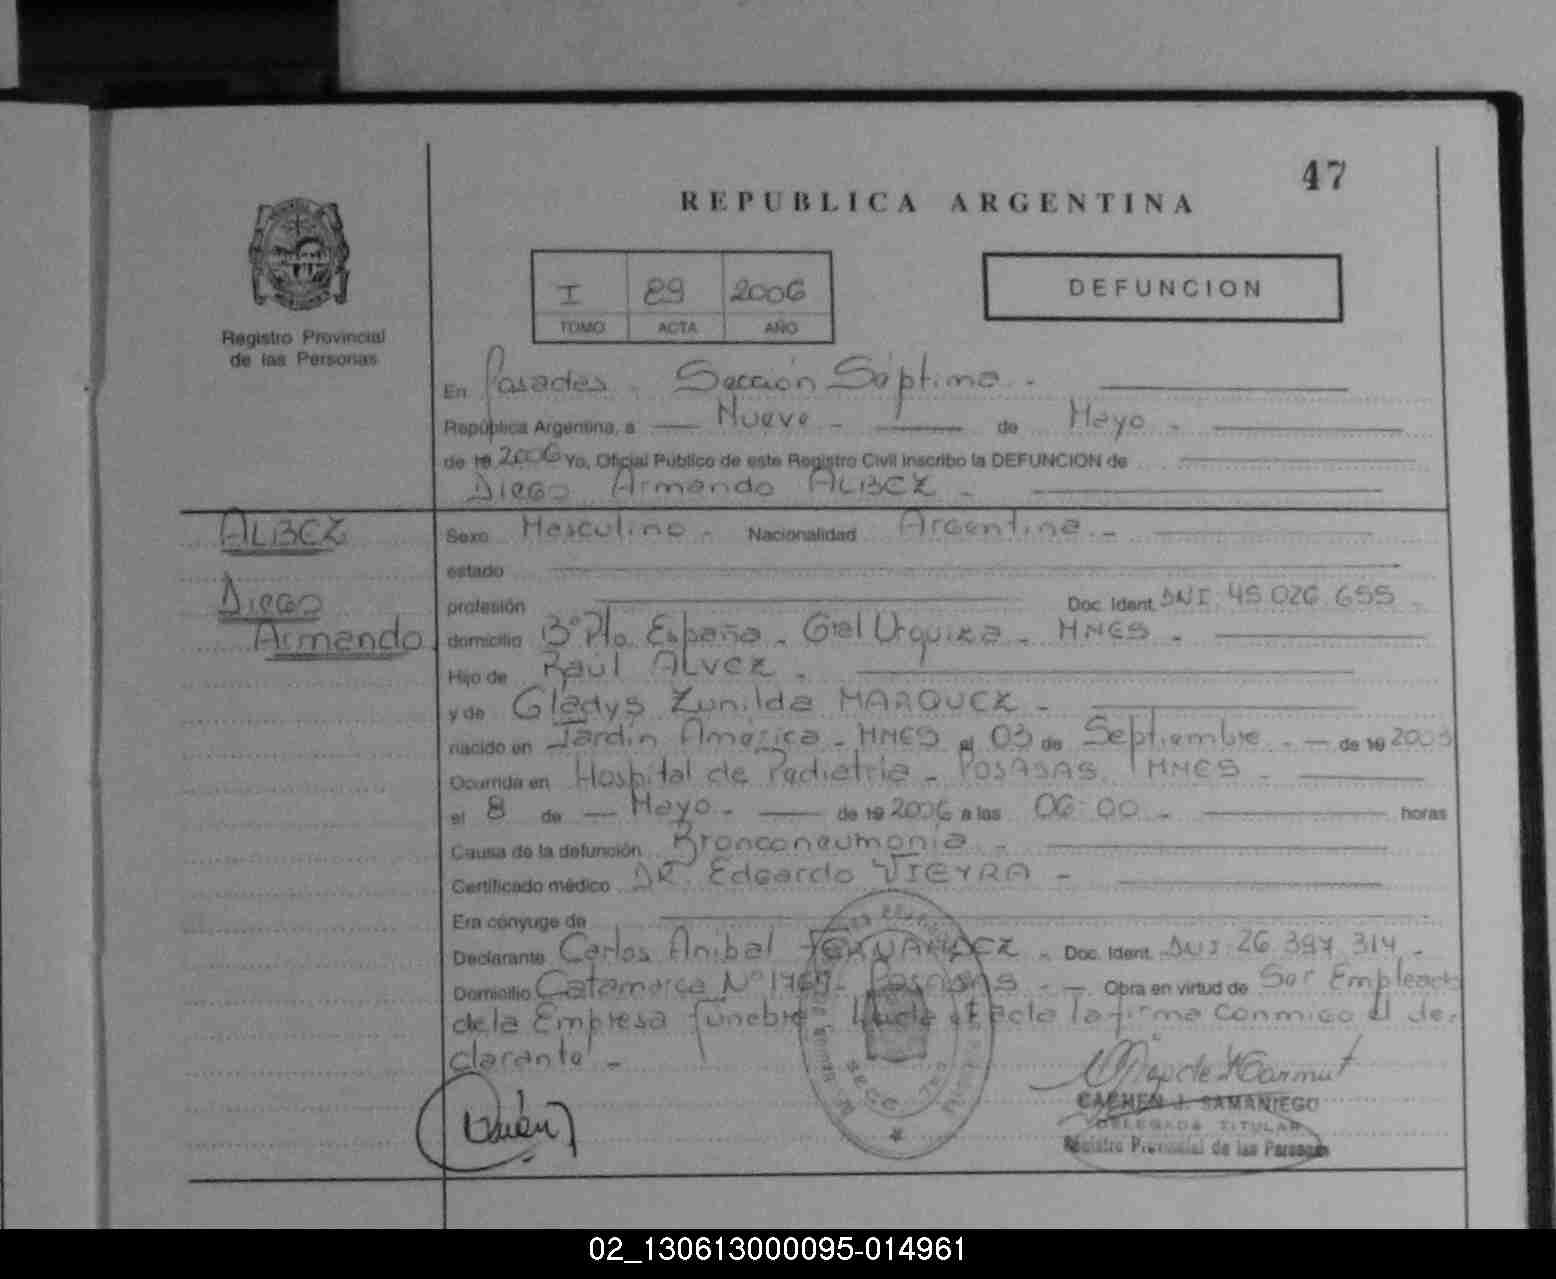 47
REPUBLICA ARGENTINA
I 89 2006
TOMO ACTA AÑO
DEFUNCION
Registro Provincial
de las Personas
En Posadas - Sección Séptima -
República Argentina, a Nueve - de Mayo -
de 19 2006 Yo, Oficial Público de este Registro Civil inscribo la DEFUNCION de
Diego Armando ALBEZ -
ALBEZ
Diego
Armando
Sexo Masculino - Nacionalidad Argentina -
estado
profesión Doc. Ident. DNI. 45.026.655 -
domicilio Bº Pto. España - Gral Urquiza - MNES -
Hijo de Raúl ALVEZ -
y de Gladys Zunilda MARQUEZ -
nacido en Jardín América - MNES el 03 de Septiembre - de 19 2003
Ocurrida en Hospital de Pediatría - POSADAS MNES -
el 8 de Mayo - de 19 2006 a las 06:00 - horas
Causa de la defunción Bronconeumonía -
Certificado médico DR. Edgardo VIEYRA -
Era cónyuge de
Declarante Carlos Aníbal FERNANDEZ - Doc. Ident. DNI. 26.397.314 -
Domicilio Catamarca Nº POSADAS - Obra en virtud de Ser Empleado
de la Empresa fúnebre Leída el acta la firma conmigo el de-
clarante -
CARMEN J. SAMANIEGO
DELEGADA TITULAR
Registro Provincial de las Personas
02_130613000095-014961